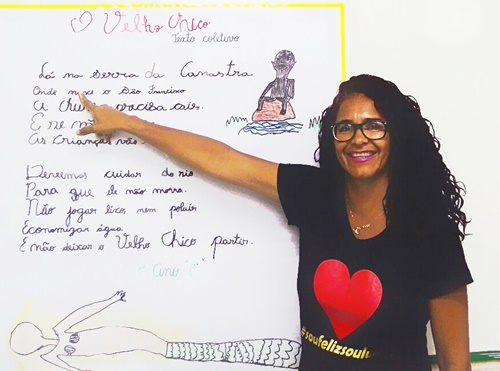 Velho Chico
Texto coletivo
Lá na serra da Canastra
Onde nasce o São Francisco
A chuva precisa cair.
E se não
As crianças vão
Devemos cuidar do rio
Para que ele não morra.
Não jogar lixo, nem poluir
Economizar água
E não deixar o Velho Chico partir.
#soufelizsoulu